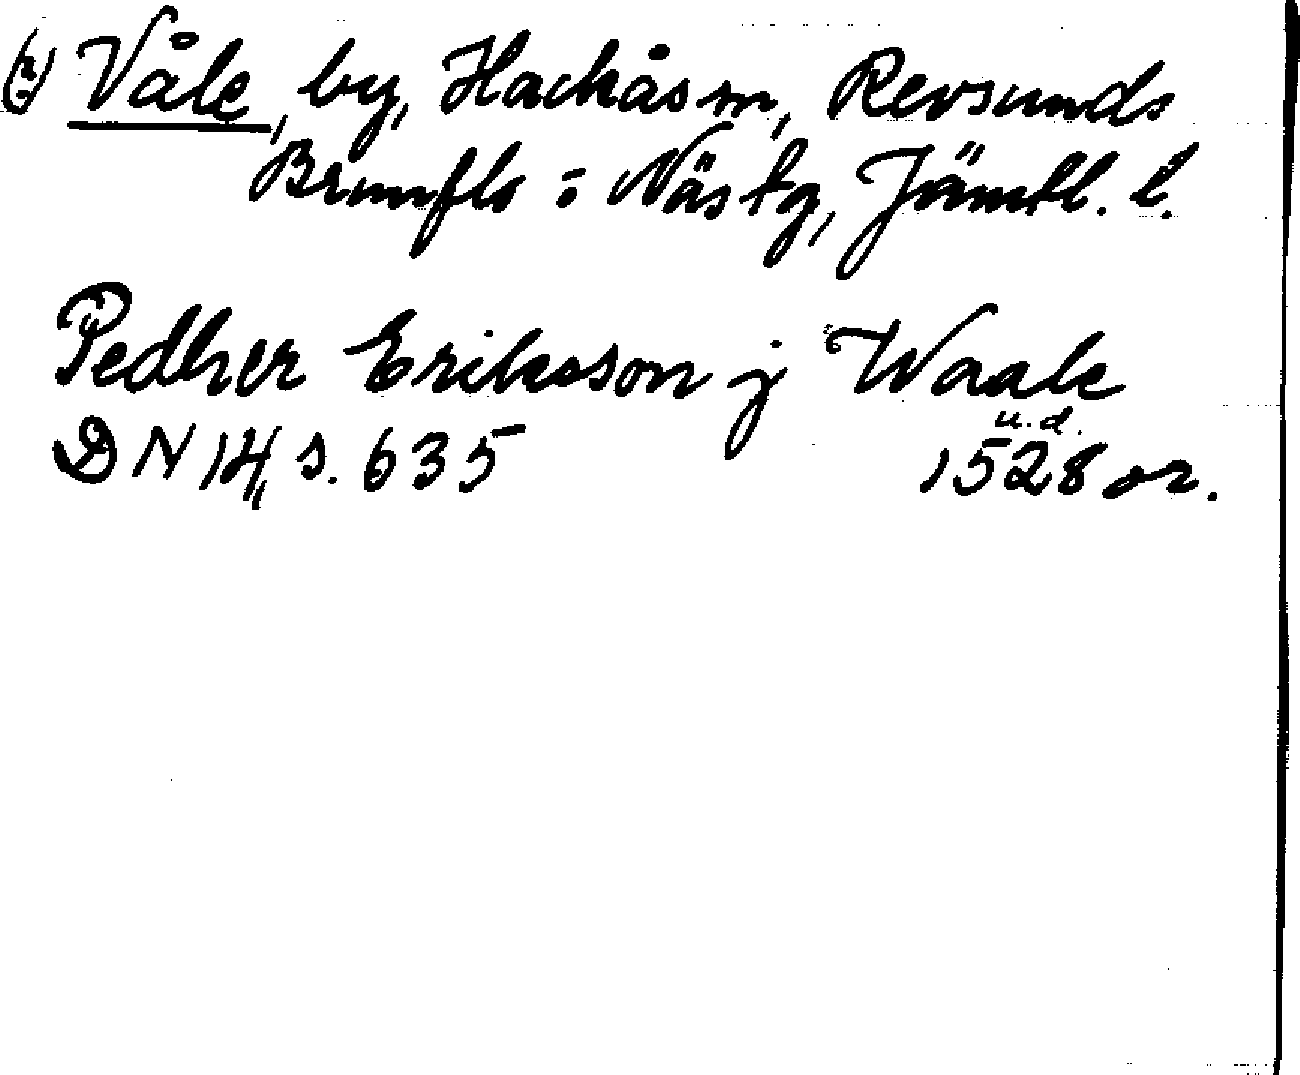 Våle, by, Hackås sn, Revsunds
Brunflo o Näs tg, Jämtl. l.
Pedher Eriksson j Waale
u.d.
DN 14, s. 635 1528 or.